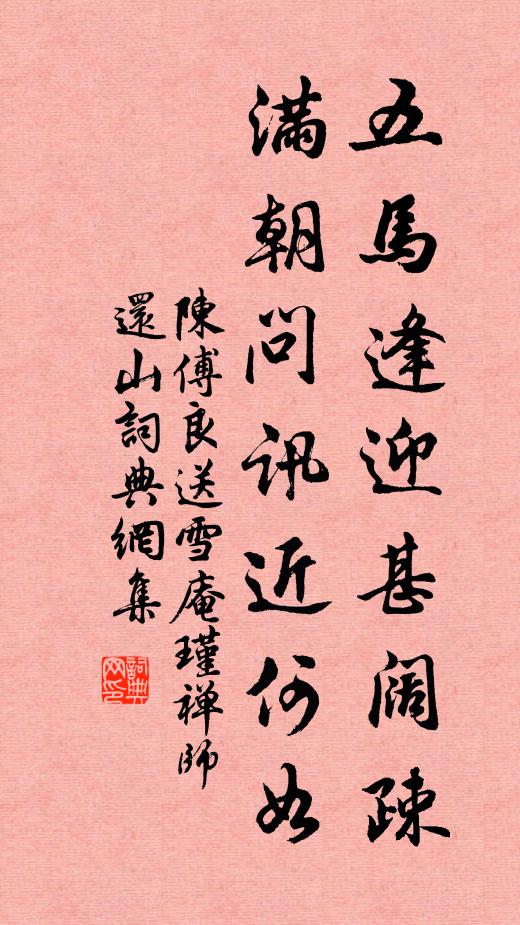 五馬逢迎甚阔疎
滿朝問訊近何如
陳傅良送雪庵瑾禅師
還山詞典網集
詞典网印